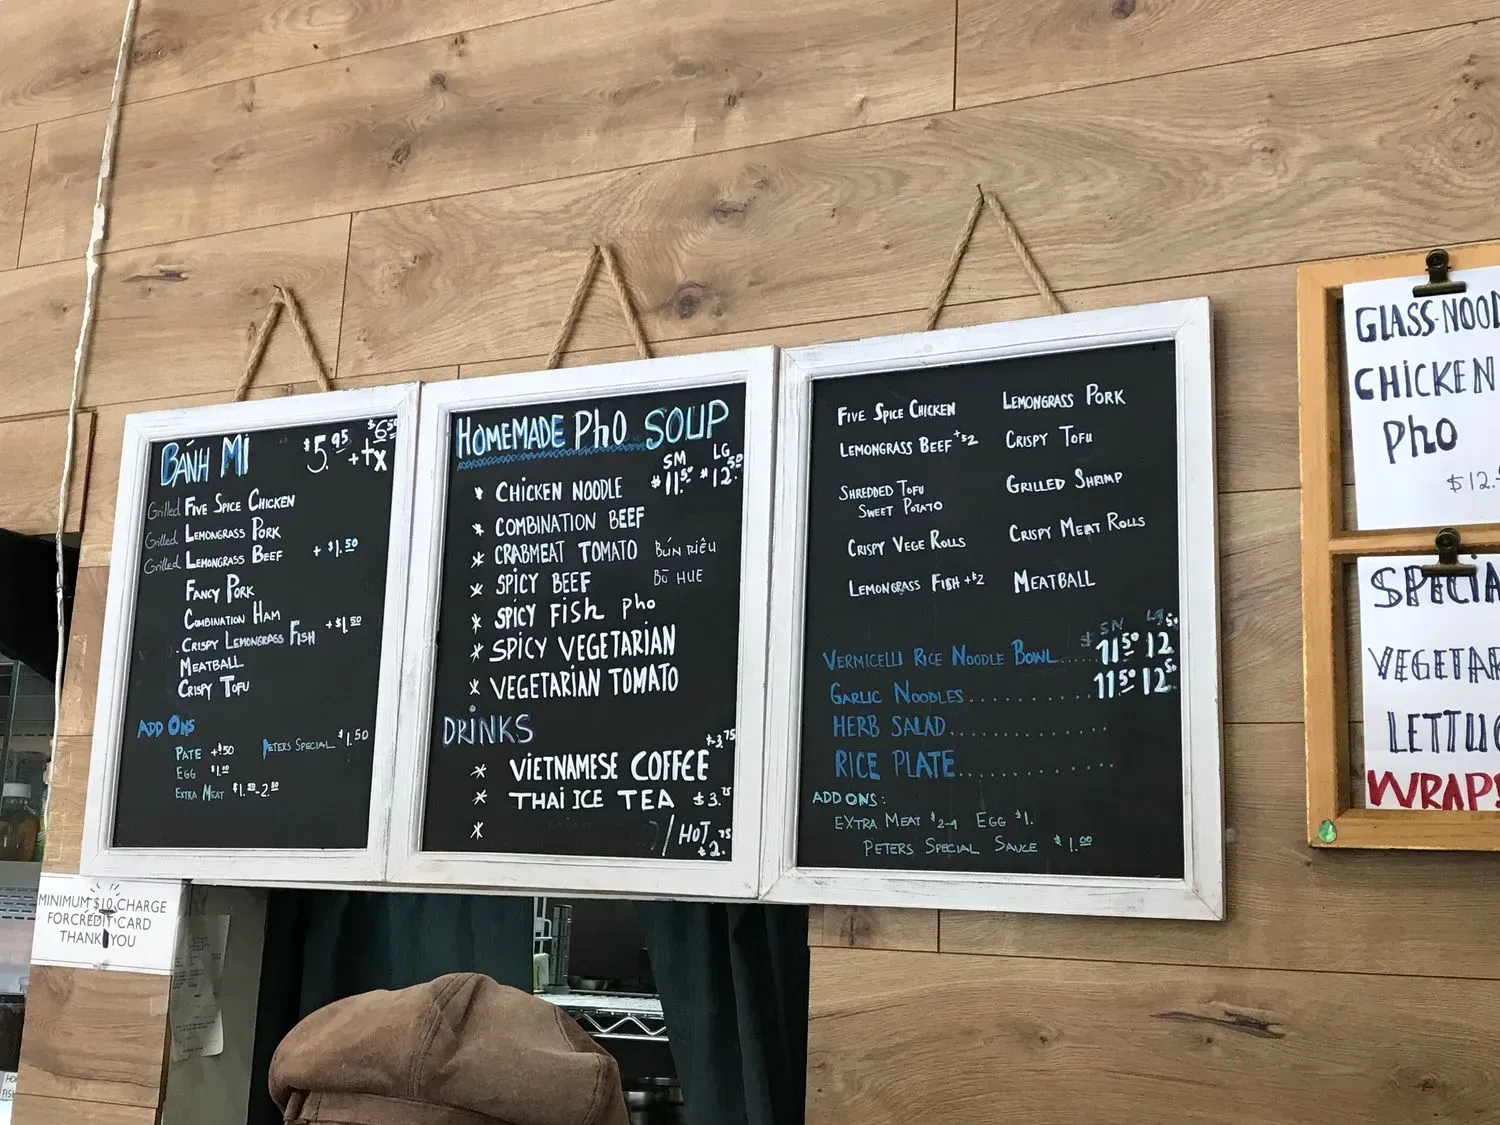 BÁNH MÌ $5.95 $6.50
+tx
Grilled FIVE SPICE CHICKEN
Grilled LEMONGRASS PORK
Grilled LEMONGRASS BEEF + $1.50
FANCY PORK
COMBINATION HAM
CRISPY LEMONGRASS FISH +$1.50
MEATBALL
CRISPY TOFU
ADD ONS
PATE +$.50 PETERS SPECIAL $1.50
EGG $1.00
EXTRA MEAT $1.50-2.50
HOMEMADE PhO SOUP
SM LG
* CHICKEN NOODLE $11.50 $12.50
* COMBINATION BEEF
* CRABMEAT TOMATO BÚN RIÊU
* SPICY BEEF BÒ HUE
* SPICY FISH Pho
* SPICY VEGETARIAN
* VEGETARIAN TOMATO
DRINKS
* VIETNAMESE COFFEE $3.75
* THAI ICE TEA $3.75
* / HOT $2.75
FIVE SPICE CHICKEN LEMONGRASS PORK
LEMONGRASS BEEF +$2 CRISPY TOFU
SHREDDED TOFU GRILLED SHRIMP
SWEET POTATO
CRISPY VEGE ROLLS CRISPY MEAT ROLLS
LEMONGRASS FISH +$2 MEATBALL
$ SM LG
VERMICELLI RICE NOODLE BOWL..... 11.50 12.50
GARLIC NOODLES........... 11.50 12.50
HERB SALAD..............
RICE PLATE..............
ADD ONS:
EXTRA MEAT $2-4 EGG $1.
PETERS SPECIAL SAUCE $1.00
GLASS-NOOD
CHICKEN
PhO
$12.
SPECIA
VEGETAR
LETTUC
WRAPS
MINIMUM $10 CHARGE
FOR CREDIT CARD
THANK YOU